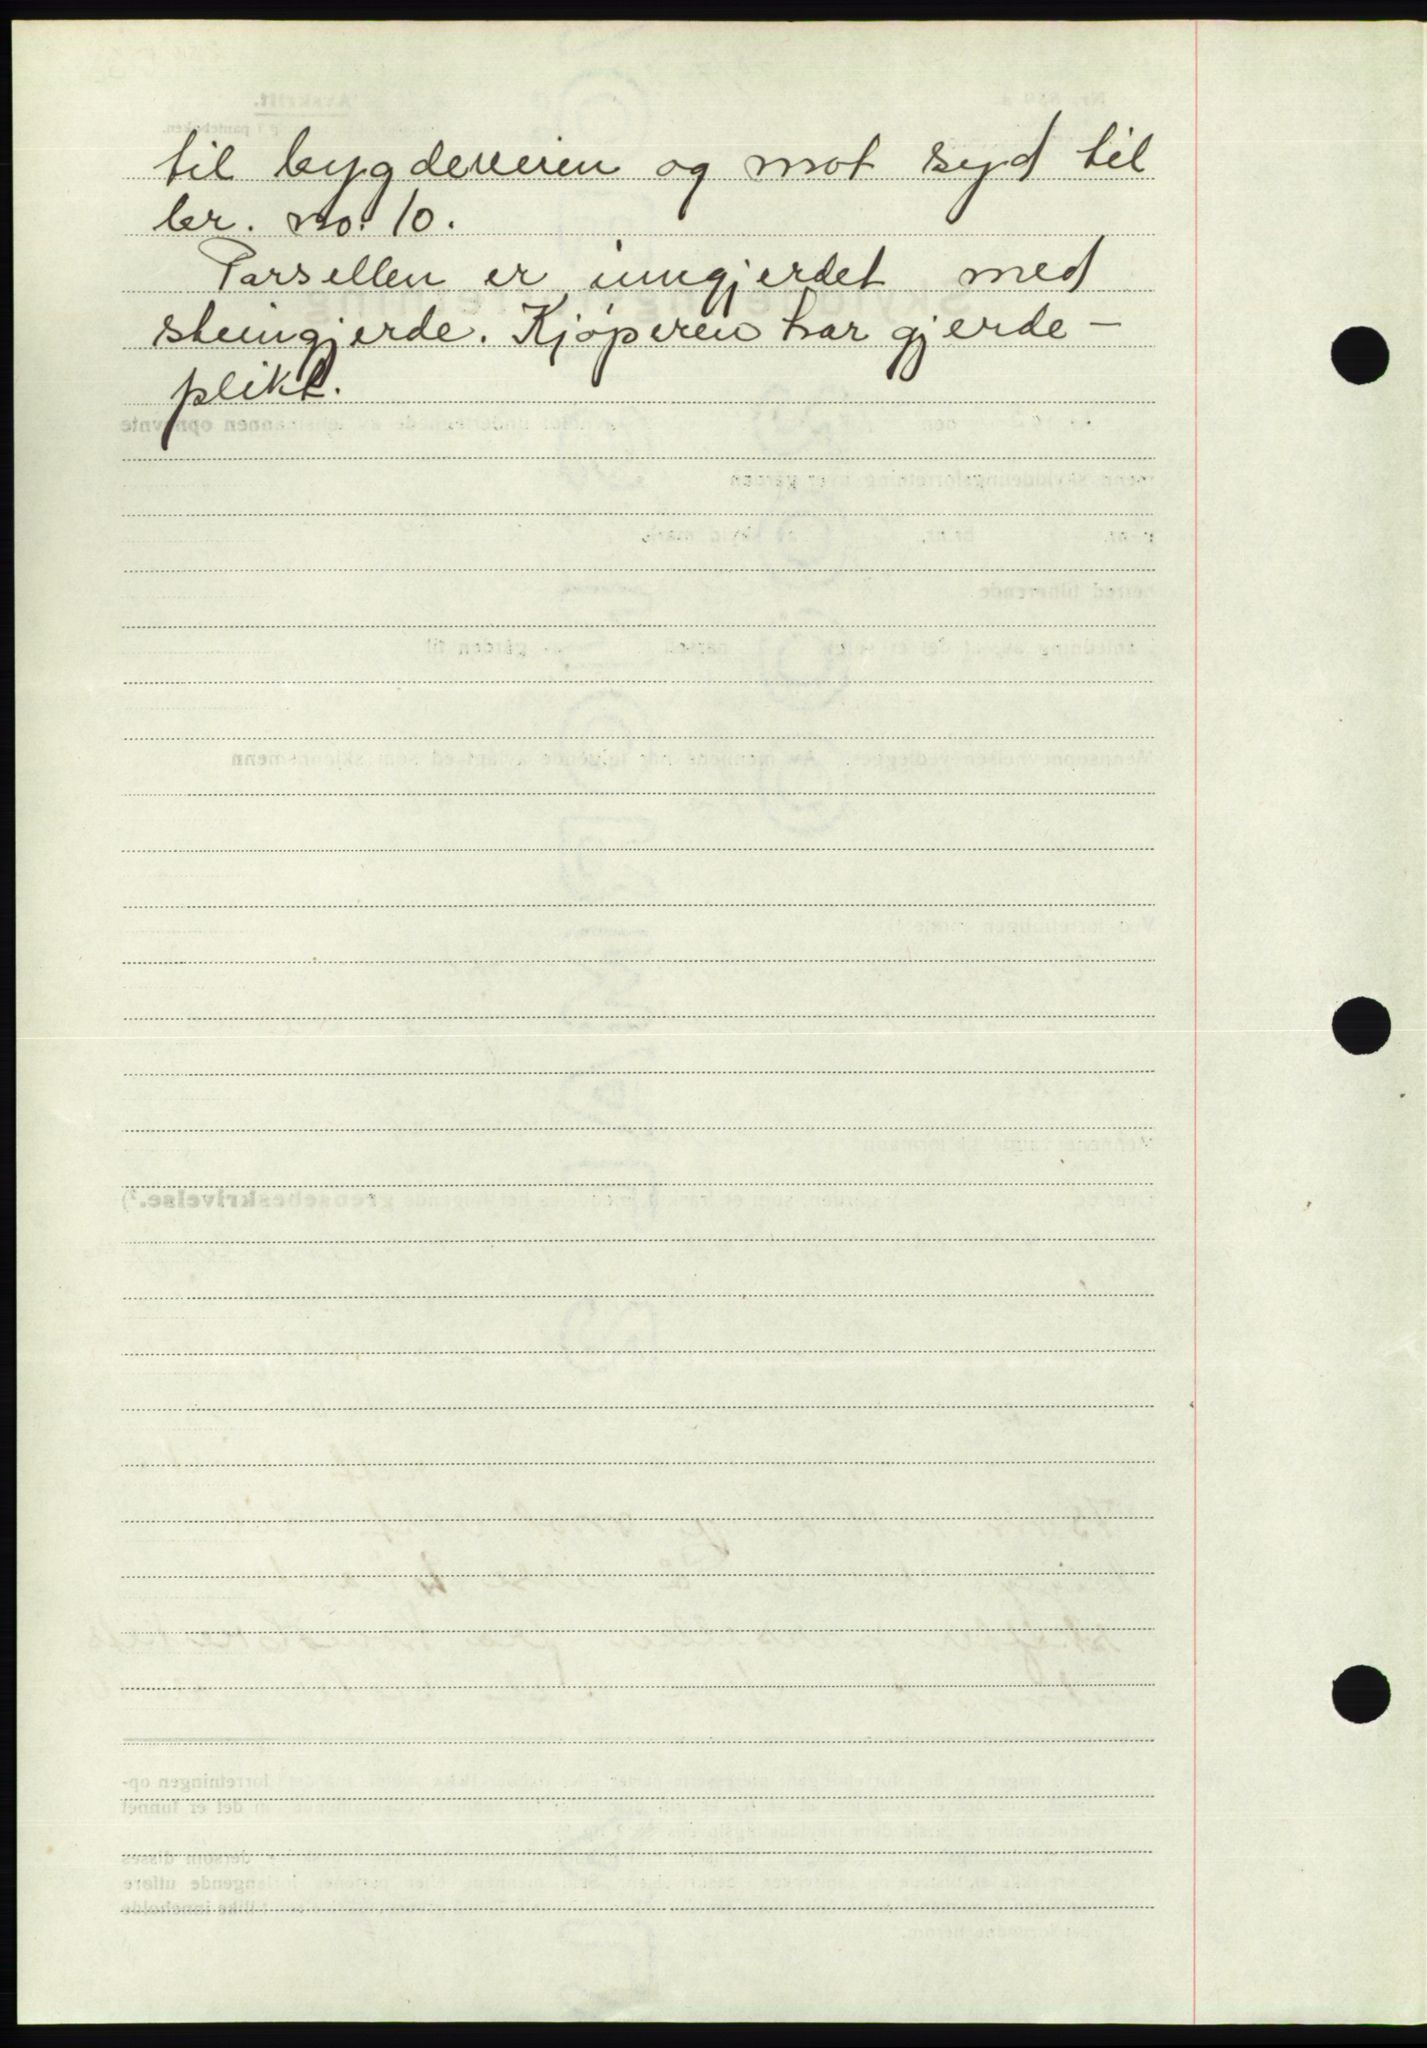 til bygdeveien og mot syd til
br. no. 10.
Parsellen er inngjerdet med
steingjerde. Kjøperen har gjerde-
plikt.